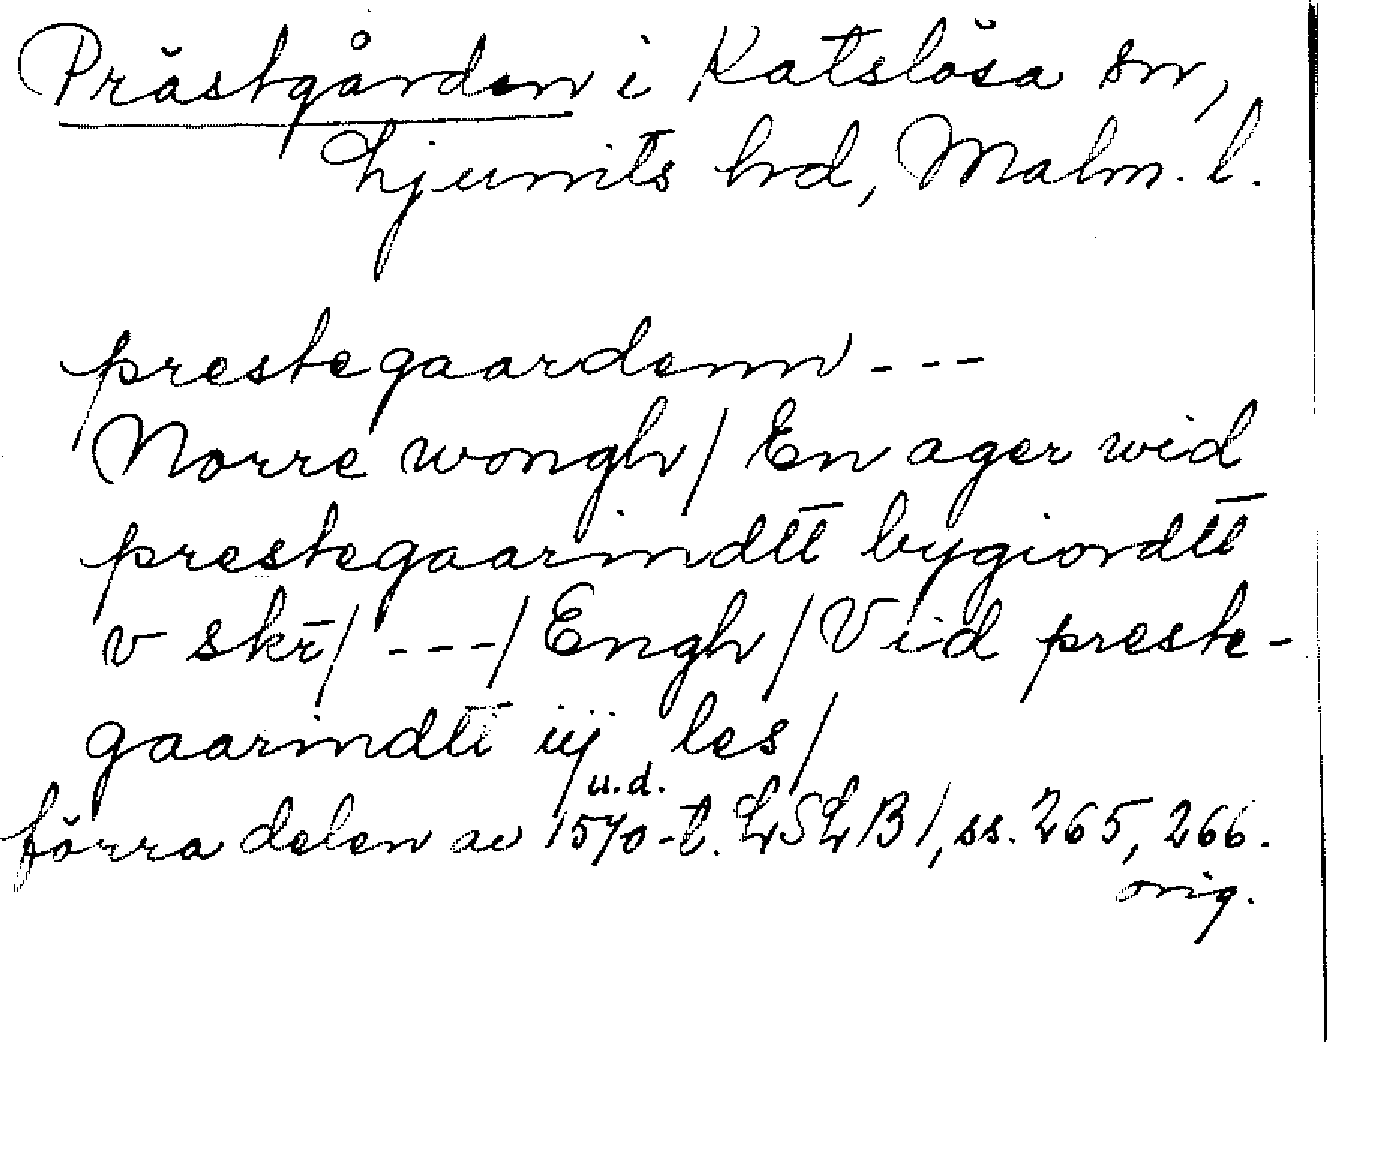 Prästgården i Katslösa sn,
Ljunits hd, Malm. l.
prestegaardenn ---
Norre wongh / En ager wid
prestegaarindtt bygiordtt
v skr̄ / --- / Engh / Vid preste-
gaarindtt iij les /
u.d.
förra delen av 1570-t. LSLB 1, ss. 265, 266.
orig.